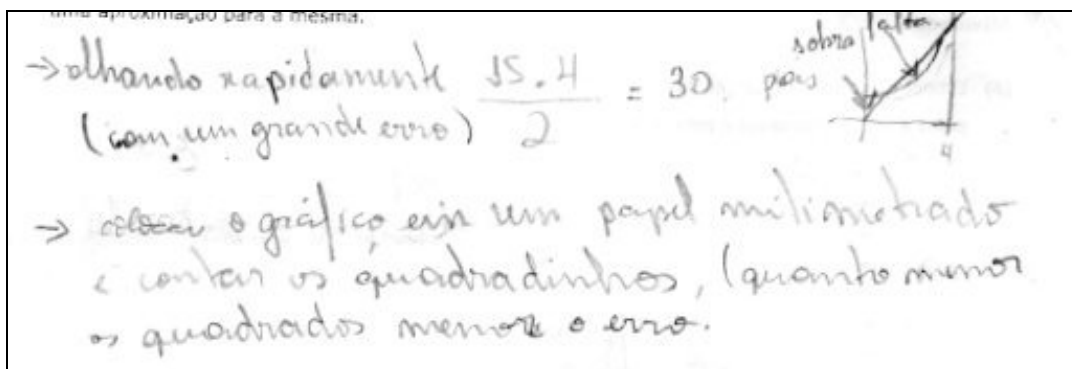 uma aproximação para a mesma.
→ olhando rapidamente 15.4 / 2 = 30, pois
(com um grande erro)
sobra falta
4
→ colocar o gráfico em um papel milimetrado
e contar os quadradinhos, (quanto menor
os quadrados menor o erro.